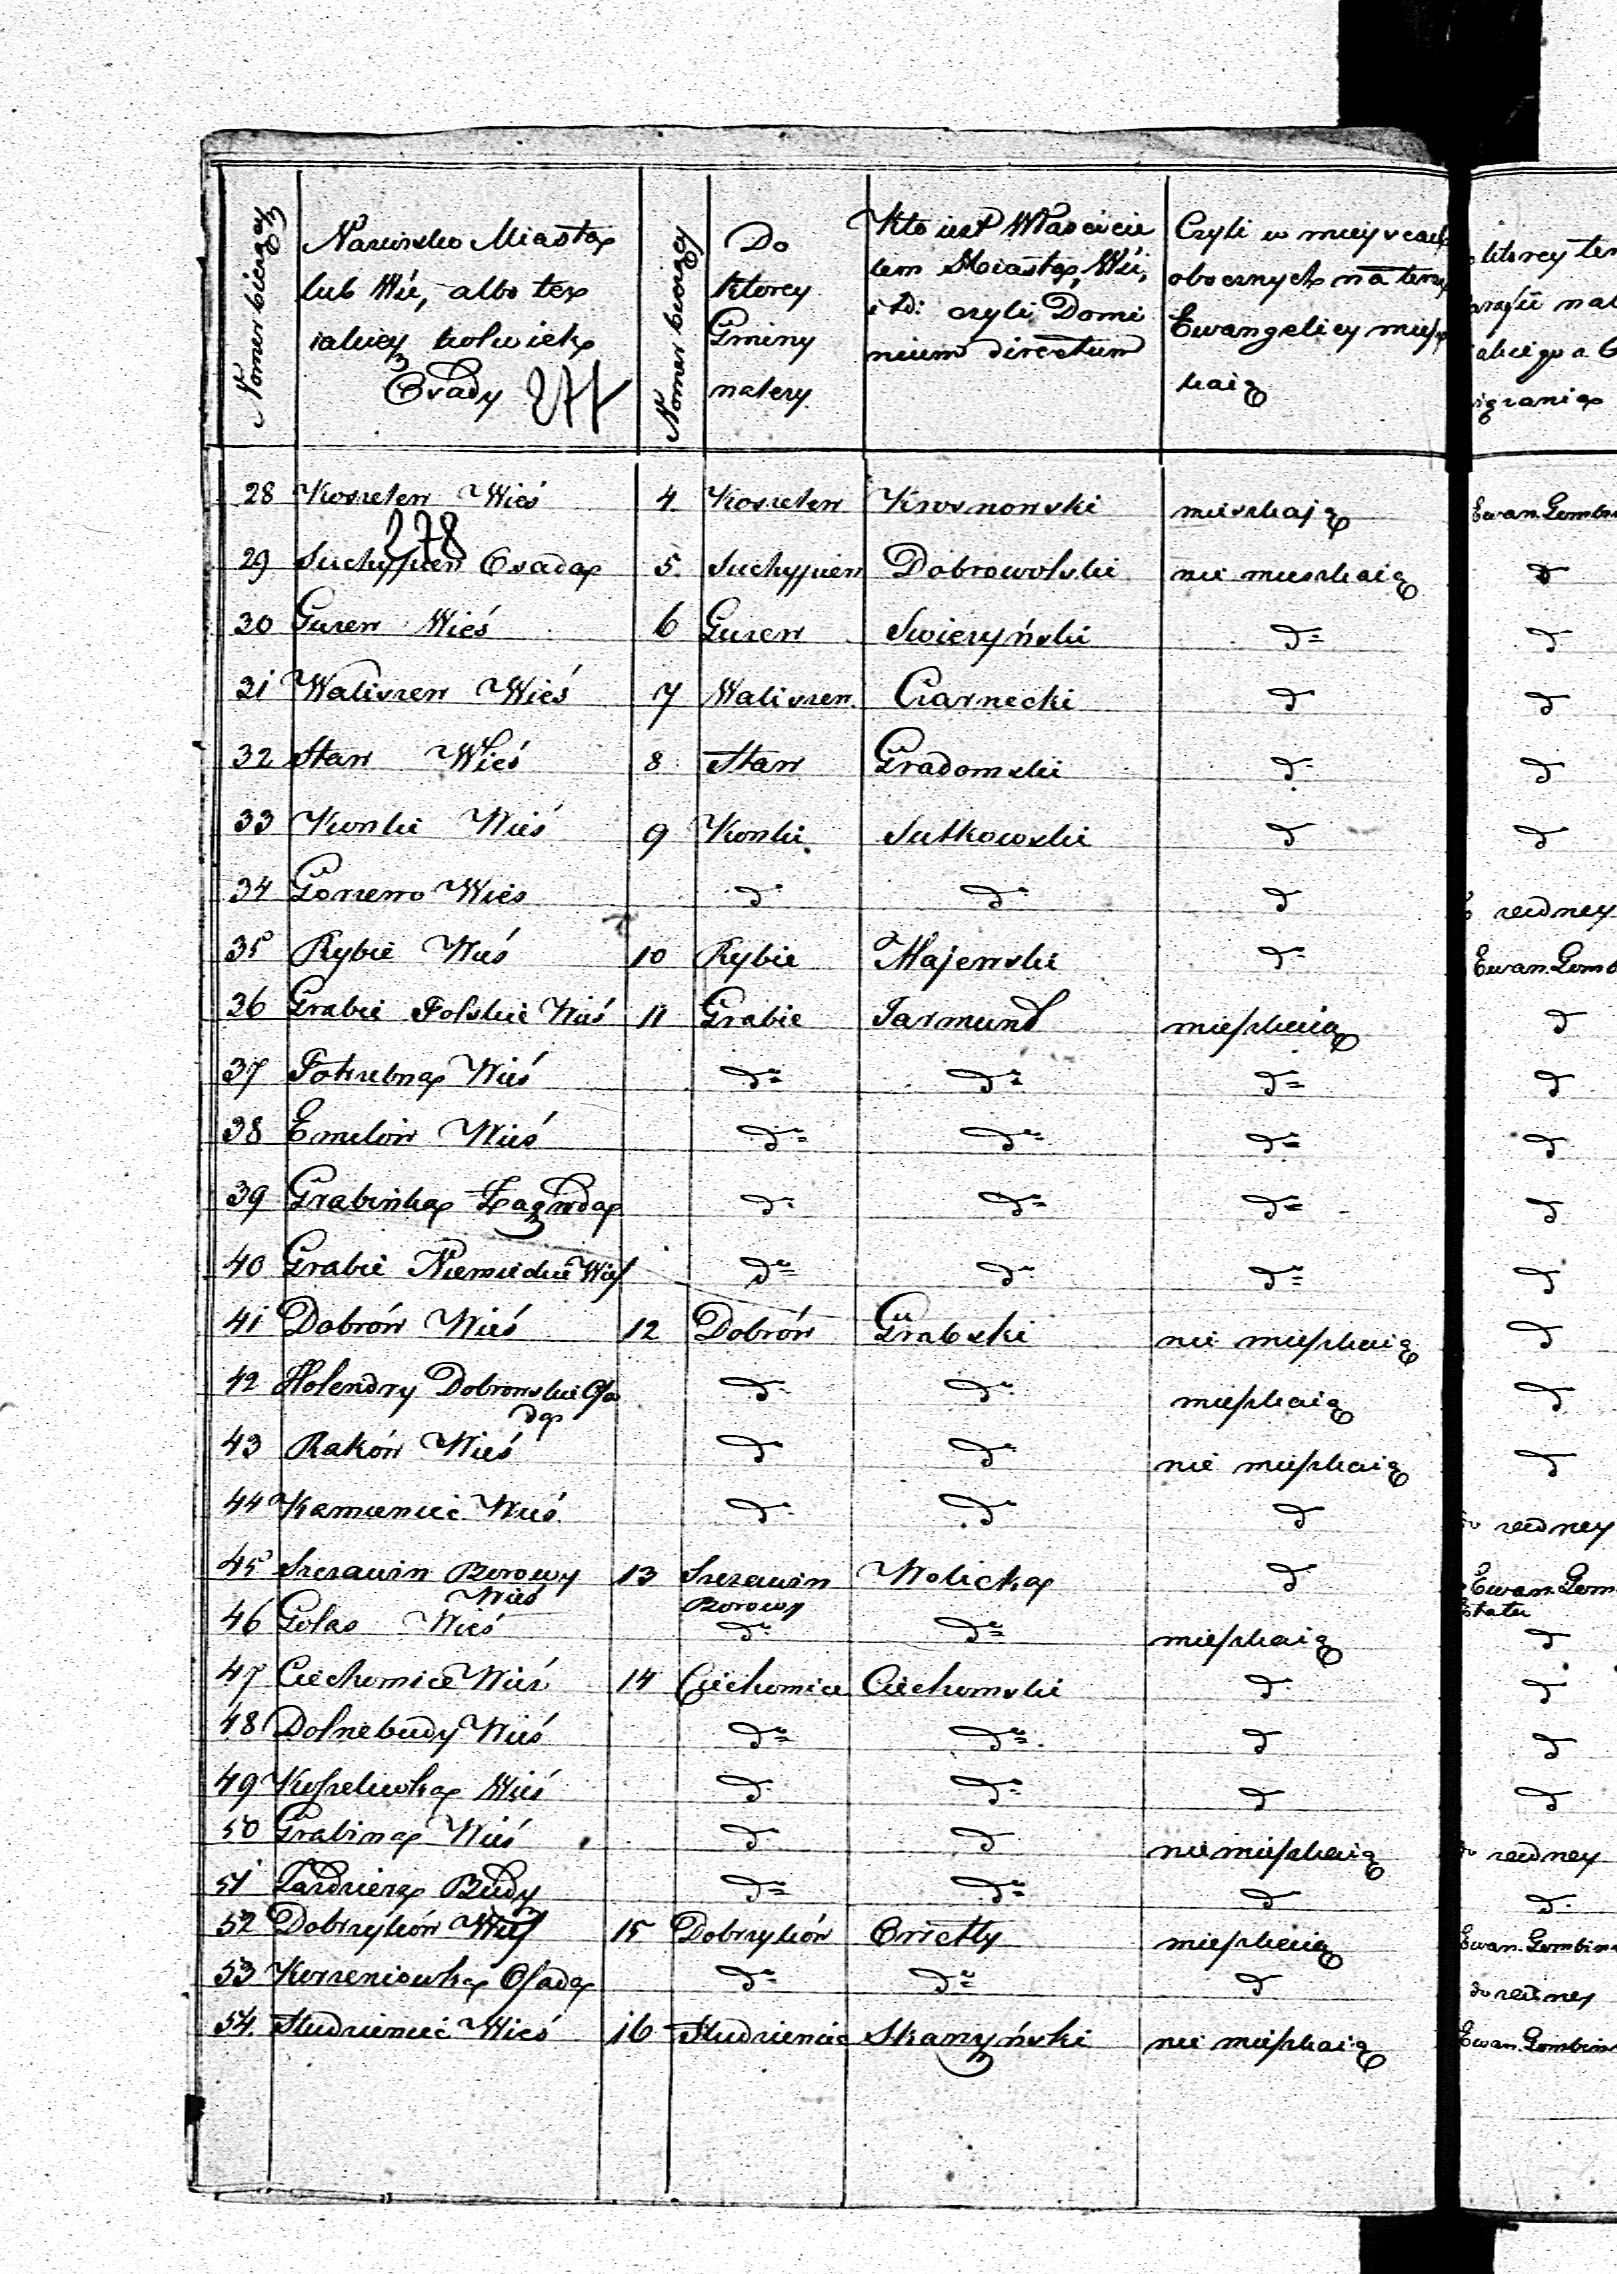 Numer bieżący
Nazwisko Miasta
lub Wsi, albo też
iakiey kolwiek
Osady 277
Numer bieżący
Do
ktorey
Gminy
należy
Kto iest Właścicie
lem Miasta, Wsi,
i t.d: czyli Domi
nium directum
Czyli w mieyscach
obocznych na teraz
Ewangelicy miesz
kaią
28 Koszelew Wieś 4. Koszelew Krosnowski mieszkają Ewan. Gombin
278
29 Suchypień Osada 5. Suchypień Dobrowolski nie mieszkaią d
30 Guzew Wieś 6 Guzew Swieżyński d= d
31 Waliszew Wieś 7 Waliszew Czarnecki d d
32 Staw Wieś 8 Staw Gradomski d d
33 Konki Wieś 9 Konki Sutkowski d d
34 Gorzewo Wieś d° d° d żadney
35 Rybie Wieś 10 Rybie Majewski d° Ewan. Gomb
36 Grabie Polskie Wieś 11 Grabie Jarmund mieszkaią d
37 Potrzebna Wieś d° d° d= d
38 Emilów Wieś d° d° d= d
39 Grabinka Zagroda d° d° d= d
40 Grabie Niemieckie Wieś d° d° d= d
41 Dobrów Wieś 12 Dobrów Grabski nie mieszkaią d
42 Holendry Dobrowskie Osa d° d° mieszkaią d
da
43 Raków Wieś d° d° nie mieszkaią d
44 Kamieniec Wieś d° d° d do żadney
45 Szczawin Borowy 13 Szczawin Wolicka d Ewan. Gom
Wieś Borowy
46 Golas Wieś d° d° mieszkaią d
47 Ciechomice Wieś 14 Ciechomice Ciechomski d d
48 Dolnebudy Wieś d° d° d d
49 Koszelówka Wieś d° d° d d
50 Grabina Wieś d° d nie mieszkaią do żadney
51 Budy d° d° d d°
52 Dobrzyków Wieś 15 Dobrzyków Orsetty mieszkaią Ewan. Gombin
53 Korzeniówka Osada d° d° d do żadney
54. Studzieniec Wieś 16 Studzieniec Skarzyński nie mieszkaią Ewan. Gombin